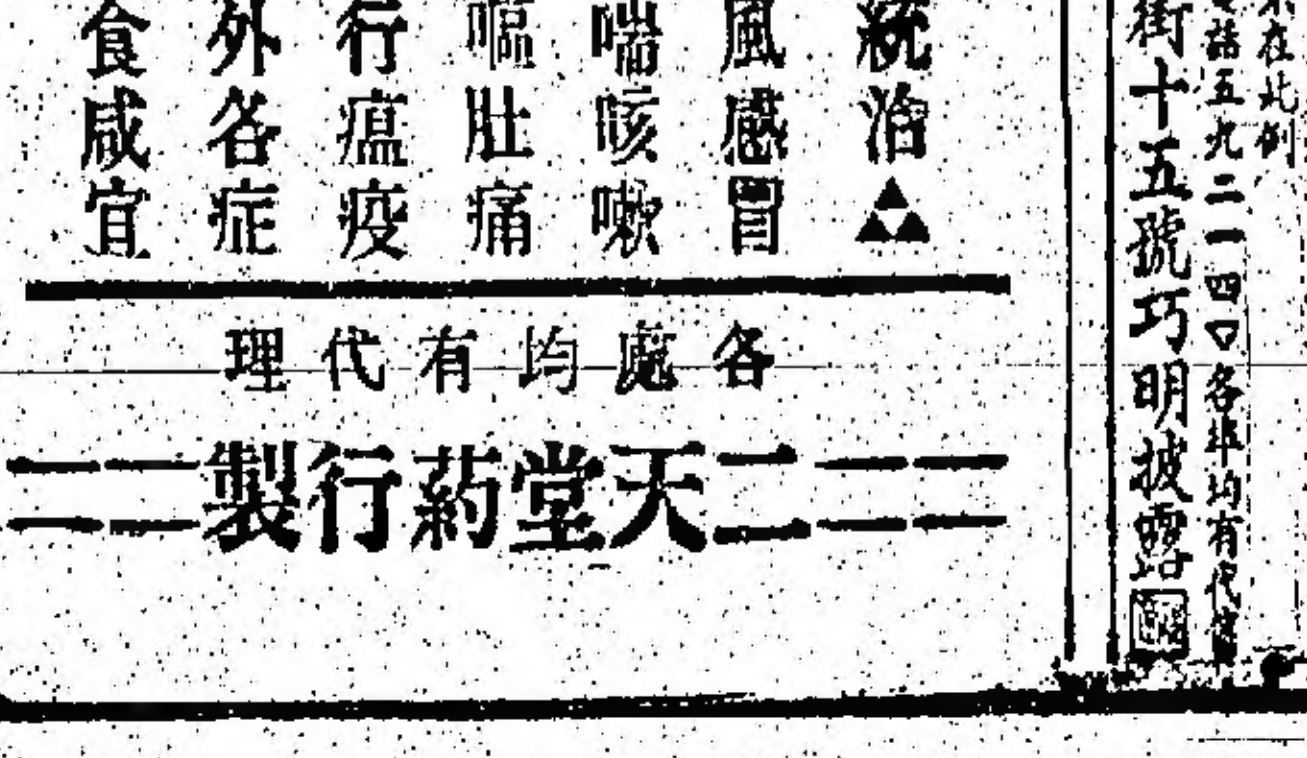 在此例
話五九二一四四▽各埠均有代售
街十五號巧明披露
統治▲
風感冒
喘咳嗽
嘔肚痛
行瘟疫
外各症
食咸宜
各處均有代理
二天堂药行製